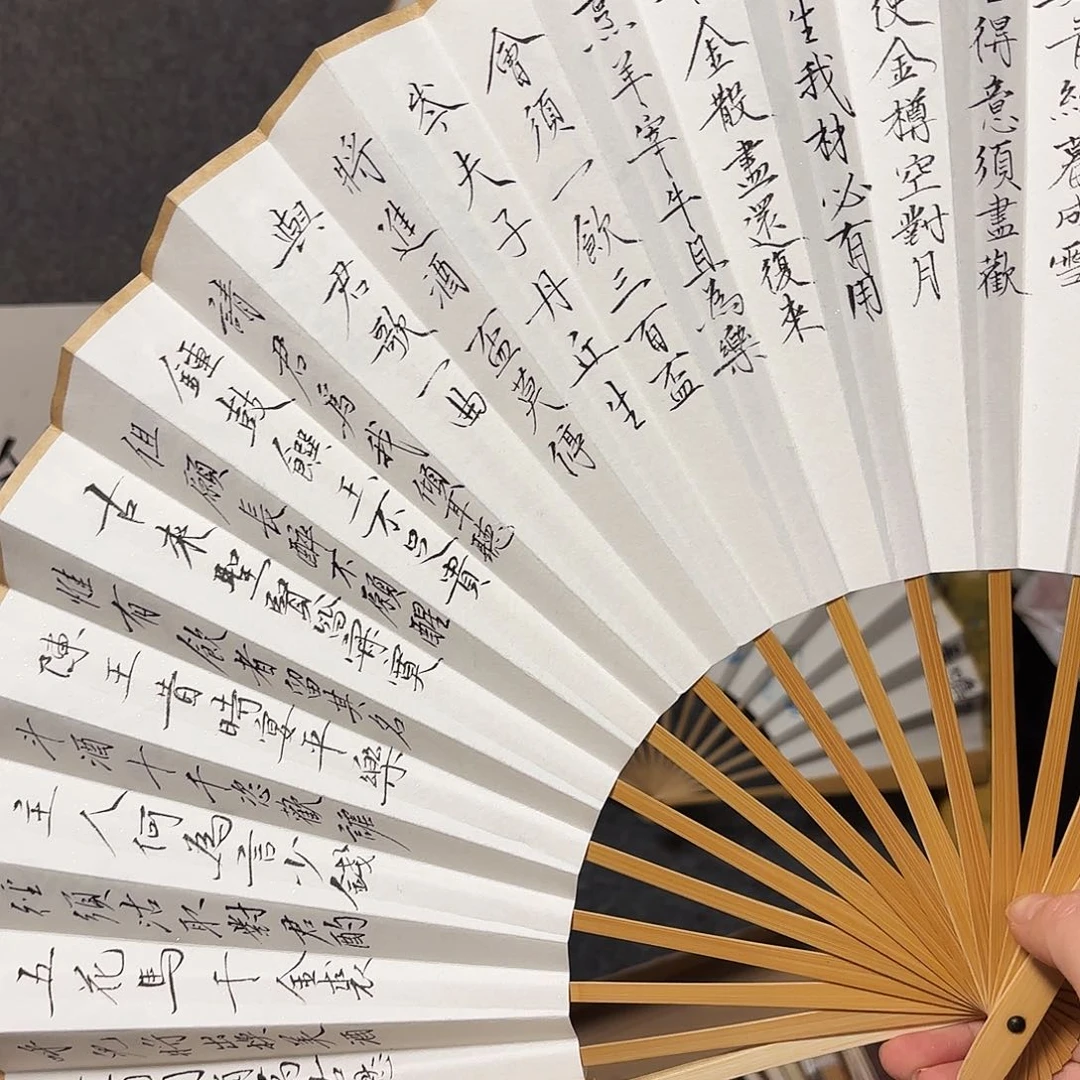 青絲暮成雪
得意須盡歡
使金樽空對月
生我材必有用
金散盡還復來
烹羊宰牛且為樂
會須一飲三百盃
岑夫子丹丘生
將進酒盃莫停
與君歌一曲
請君為我傾耳聽
鍾鼓饌玉不足貴
但願長醉不願醒
古來聖賢皆寂寞
惟有飲者留其名
陳王昔時宴平樂
斗酒十千恣歡謔
主人何為言少錢
徑須沽取對君酌
五花馬千金裘
呼兒將出換美酒